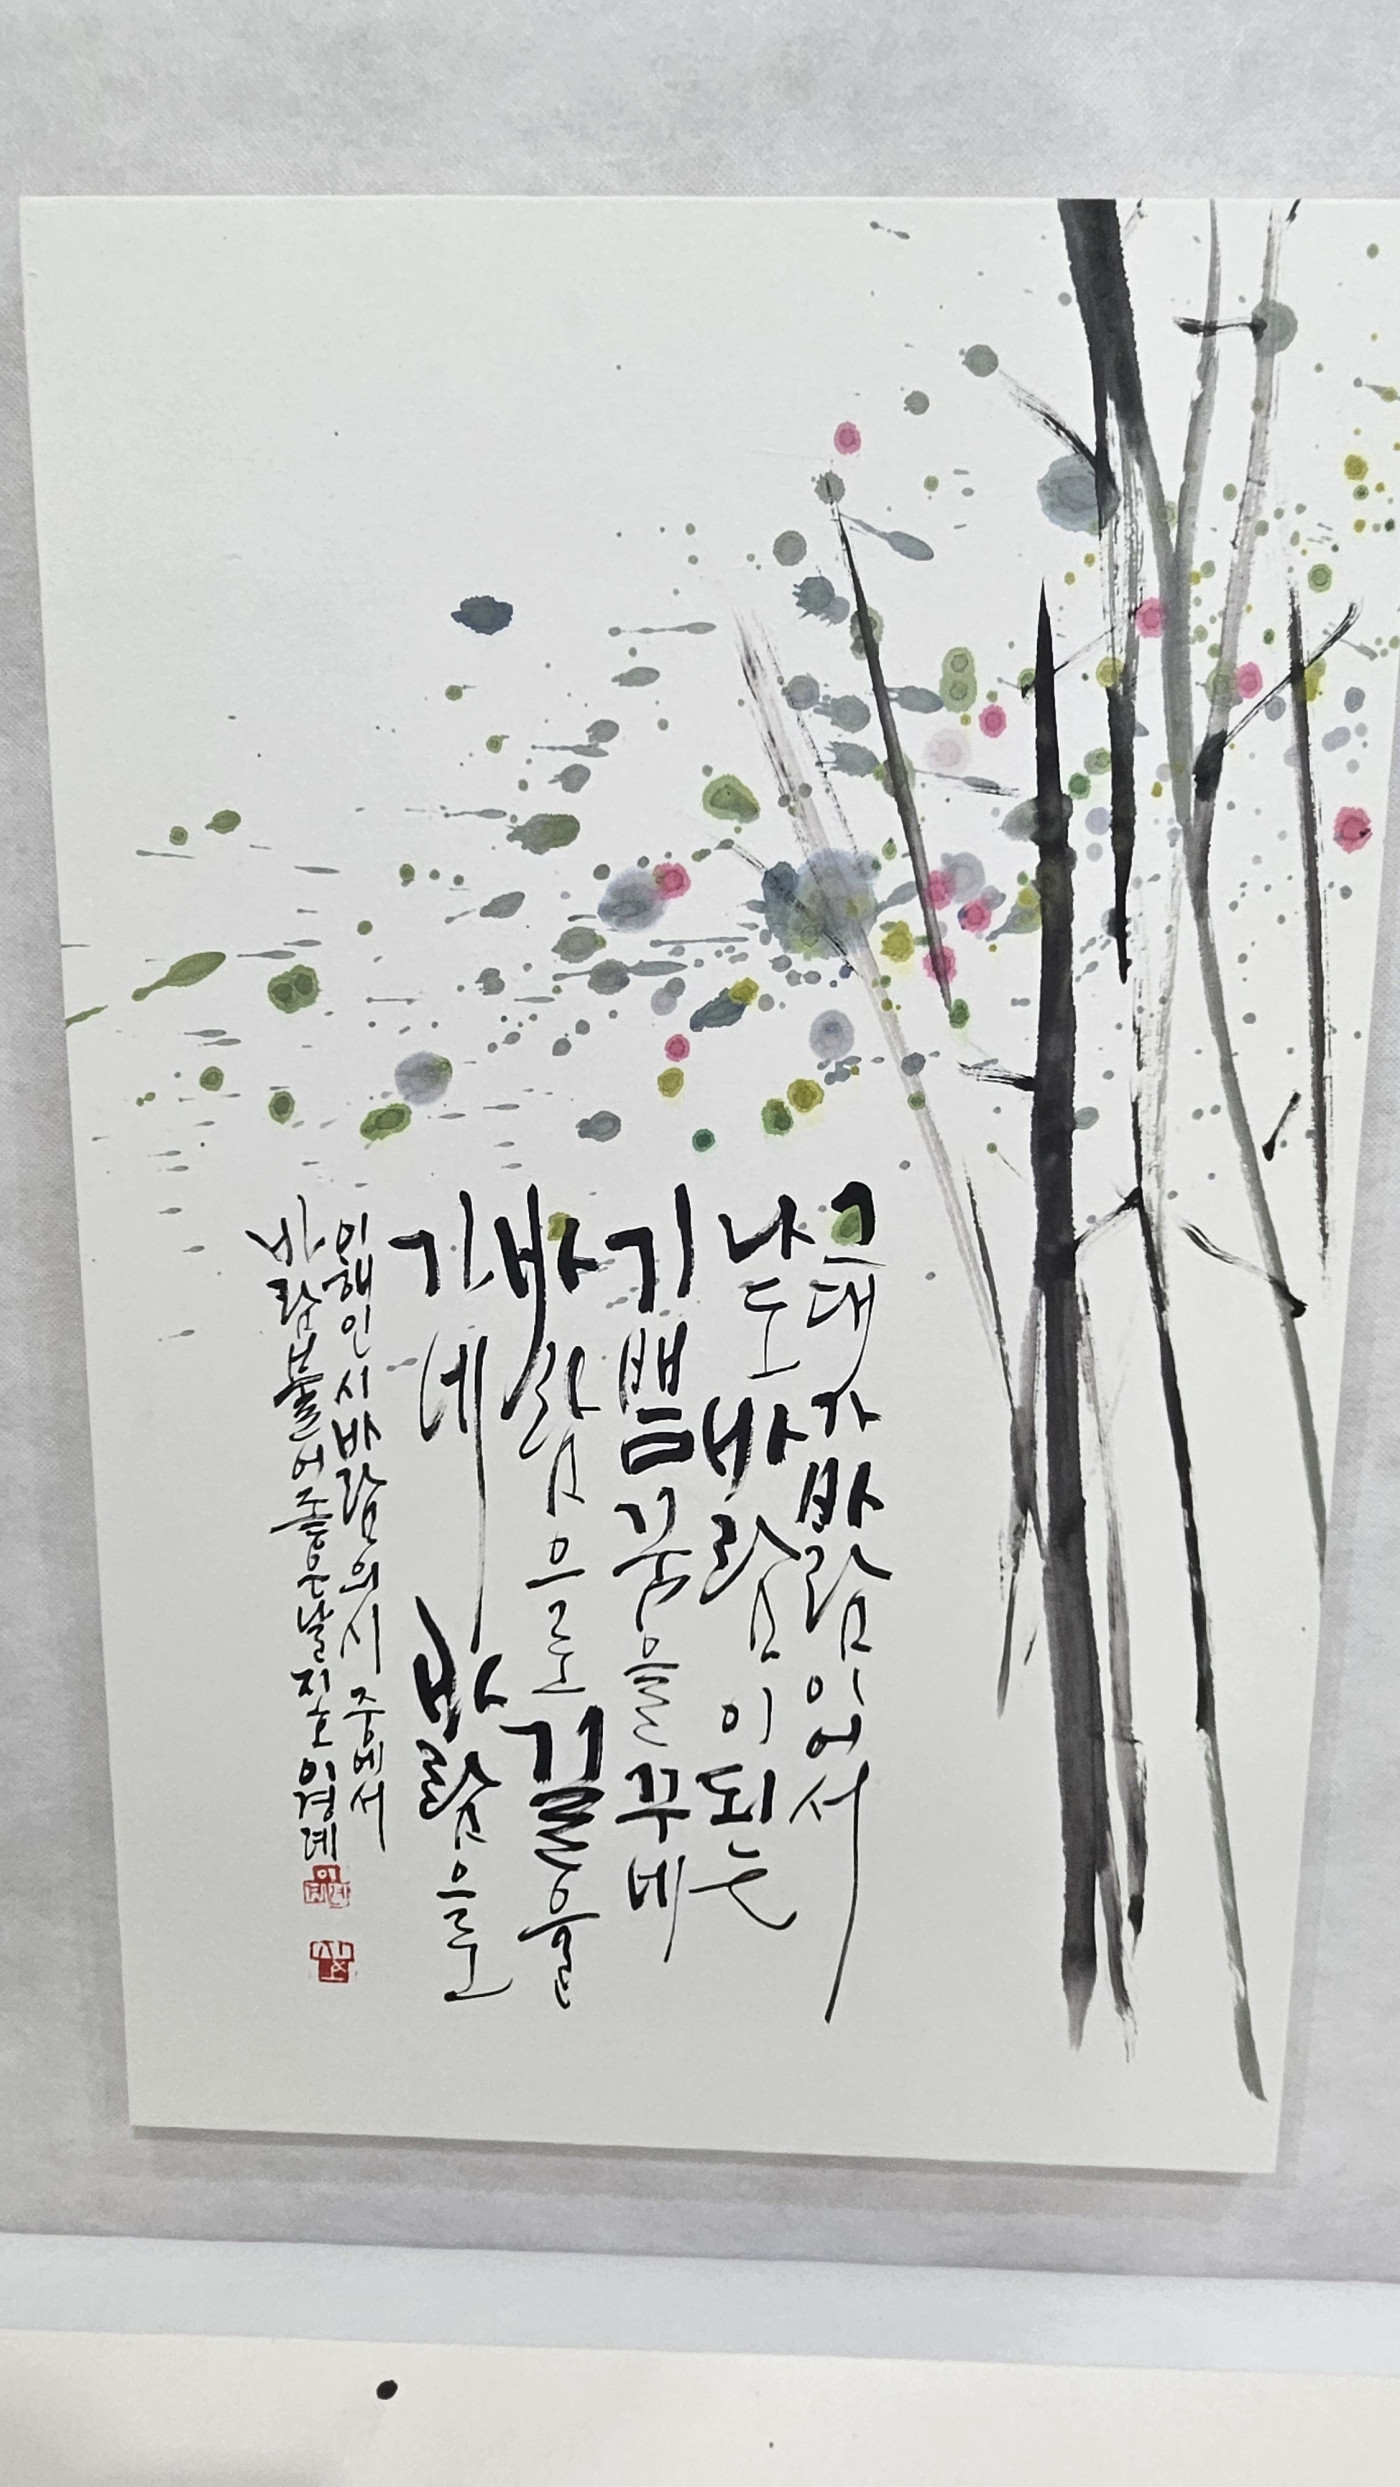 그대가 바람이어서
나도 바람이 되는
기쁨 꿈을 꾸네
바람으로 길을
가네 바람으로
이해인 시 바람의 시 중에서
바람 불어 좋은 날 지은 이경례